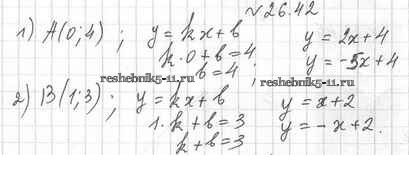 √26.42
1) A(0;4) ; y=kx+b y=2x+4
k·0+b=4 y=-5x+4
b=4.
reshebnik5-11.ru / reshebnik5-11.ru
2) B(1;3) ; y=kx+b y=x+2
1·k+b=3 y=-x+2.
k+b=3